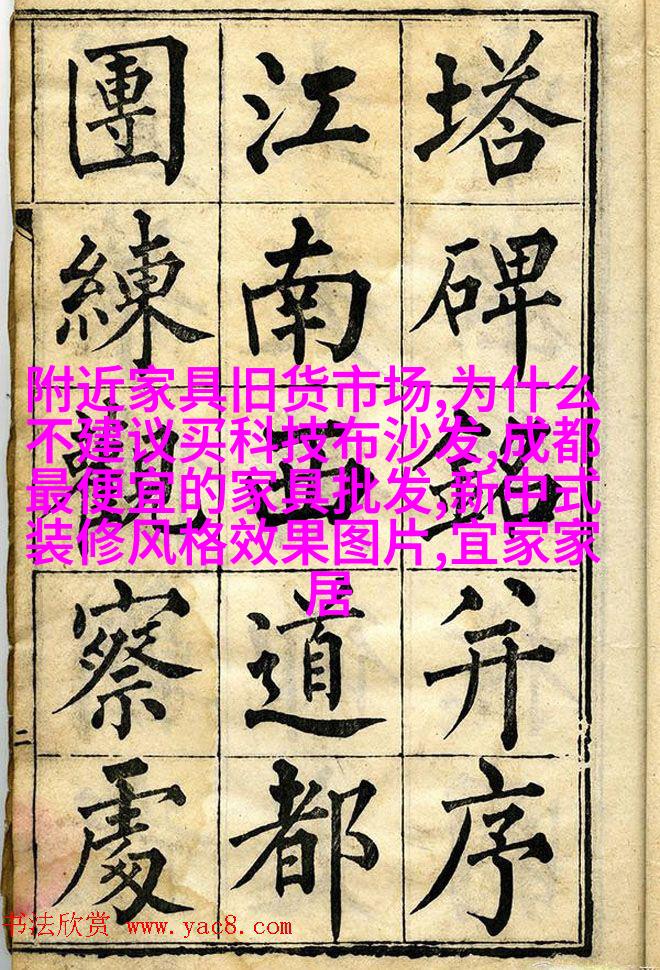 塔碑銘并序
江南西道都
團練觀察處
二
附近家具旧货市场,为什么
不建议买科技布沙发,成都
最便宜的家具批发,新中式
装修风格效果图片,宜家家
居
书法欣赏 www.yac8.com